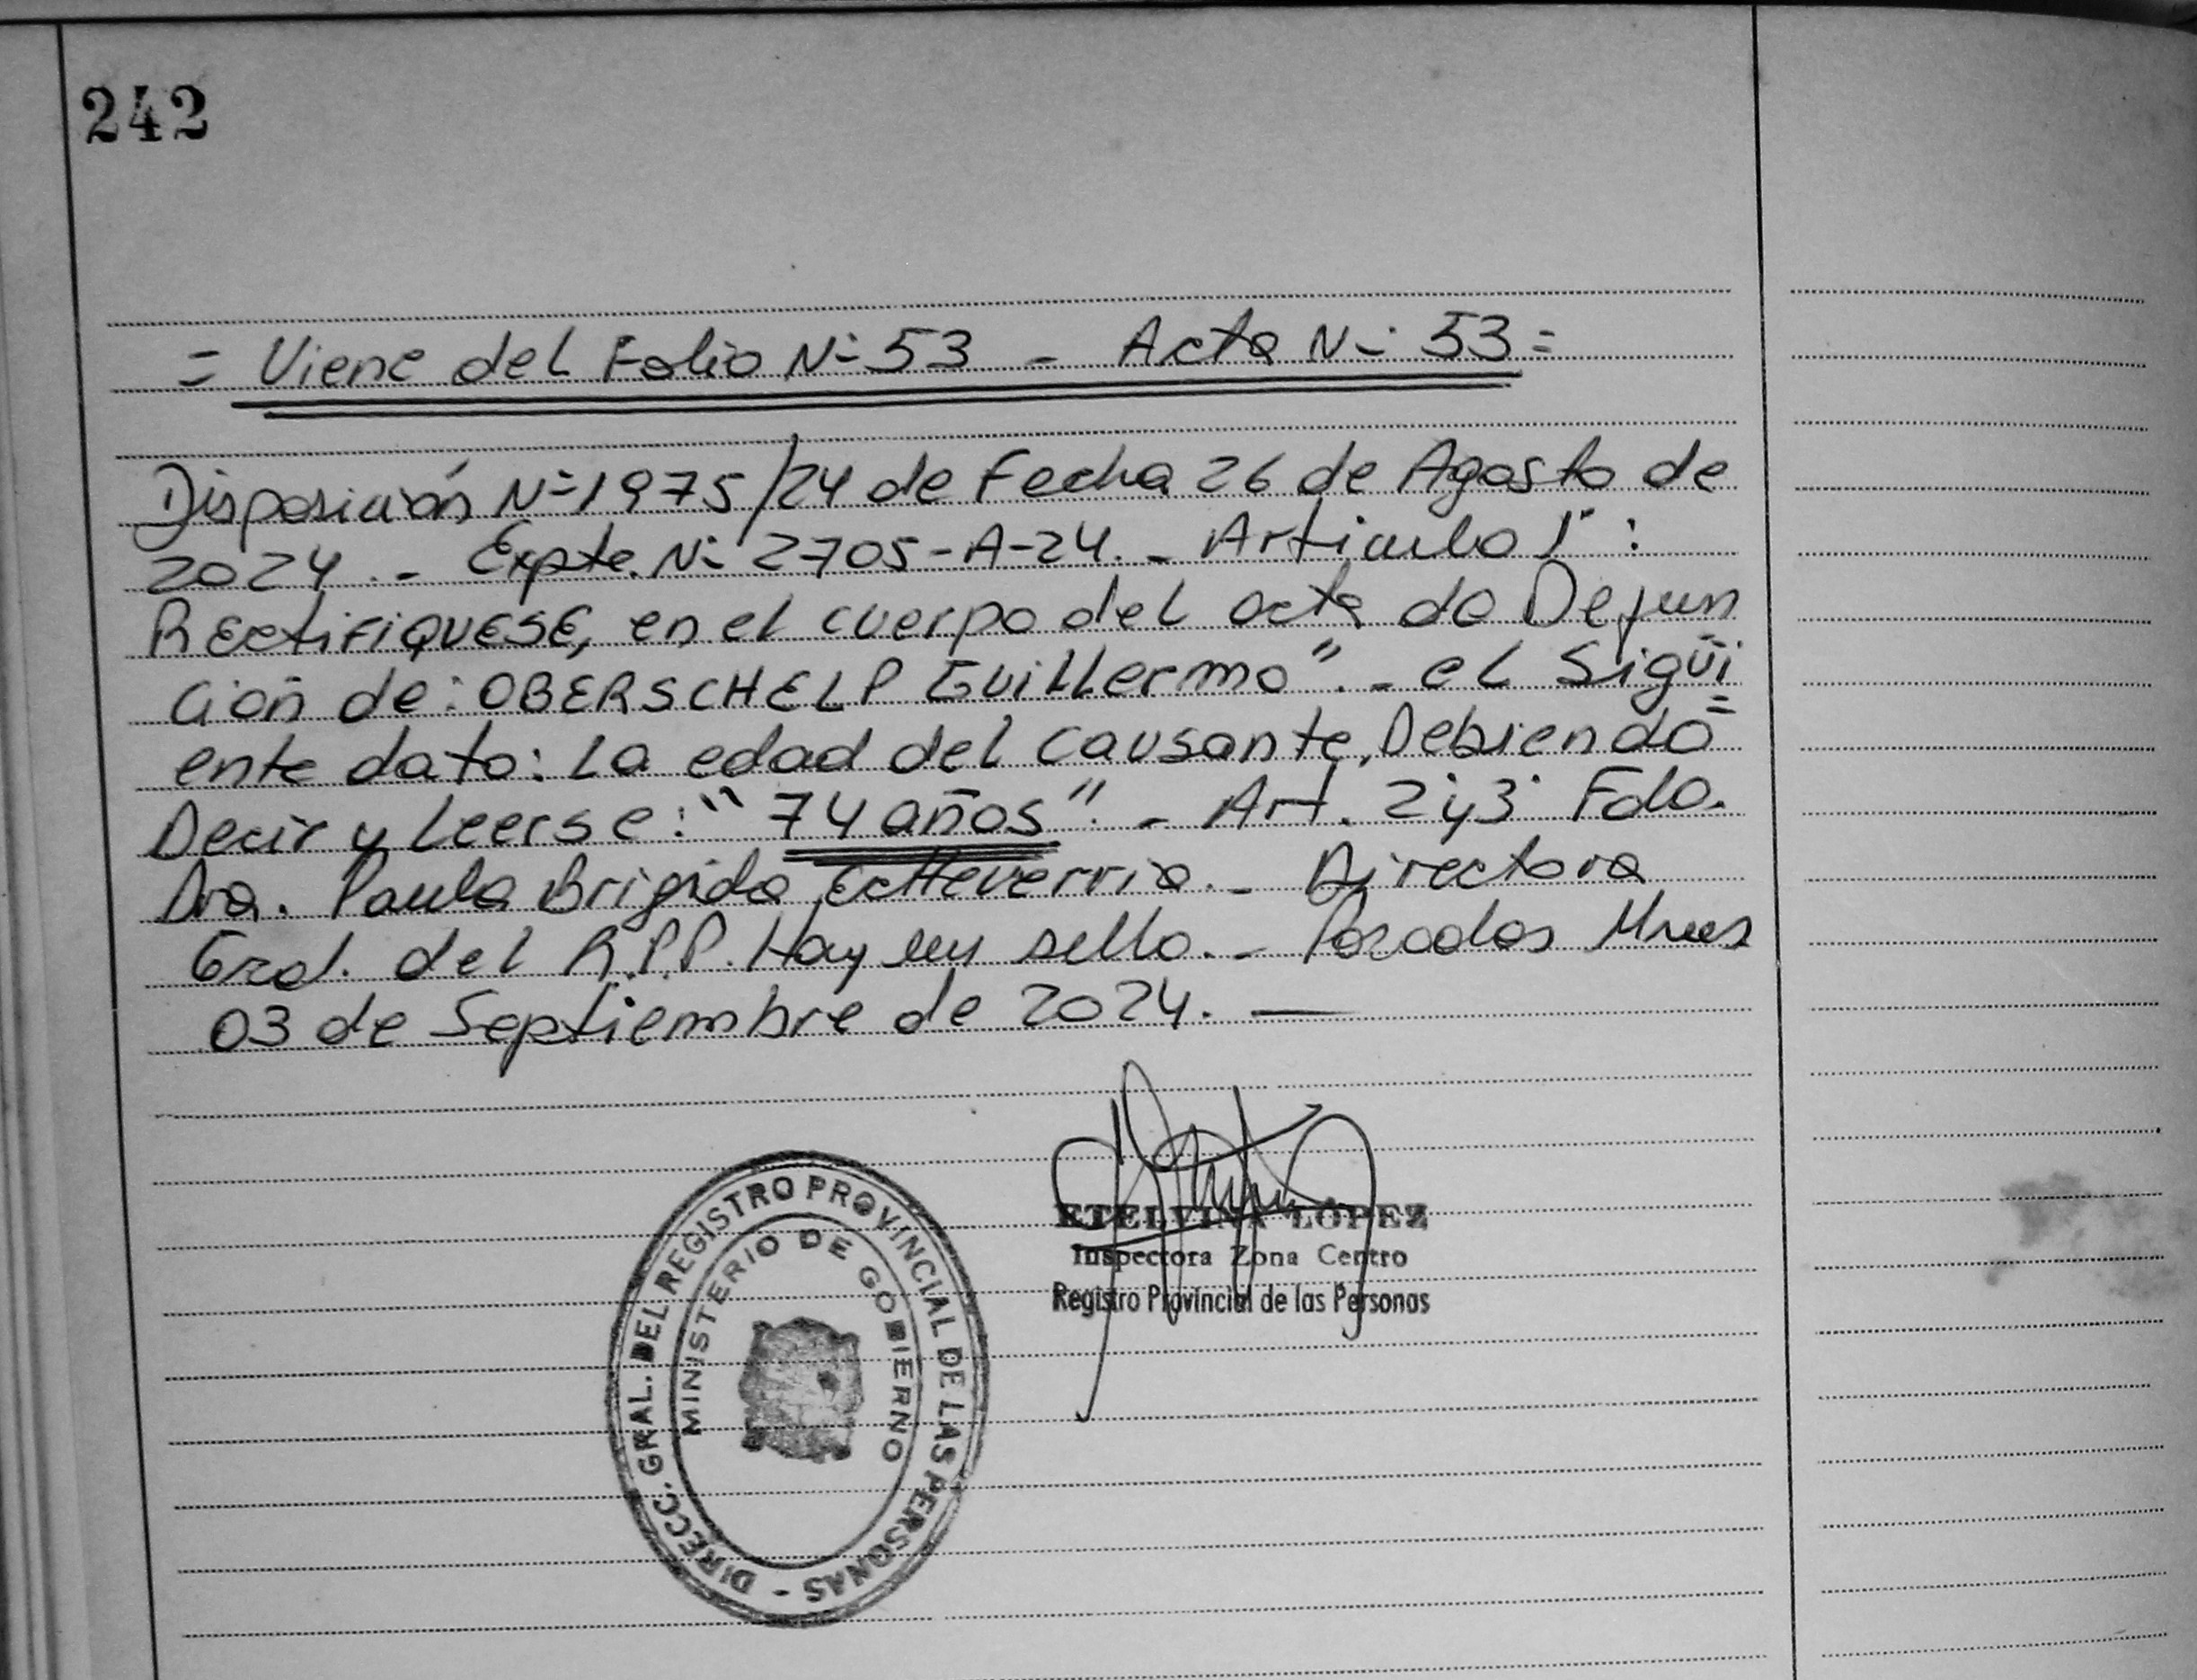 242
= Viene del Folio N° 53 - Acta N° 53 =
Disposición N° 1975/24 de Fecha 26 de Agosto de
2024.- Expte. N° 2705-A-24.- Articulo 1° :
RECtiFIQUESE, en el cuerpo del acta de Defun
ción de: OBERSCHELP Guillermo".- el Sigüi=
ente dato: La edad del Causante, Debiendo
Decir y Leerse: "74 años".- Art. 2° y 3° Fdo.
Dra. Paula Brigida Echeverria.- Directora
Gral. del R.P.P. Hay un sello.- Posadas Mnes
03 de Septiembre de 2024. —
ETELVINA LÓPEZ
Inspectora Zona Centro
Registro Provincial de las Personas
DIRECC. GRAL. DEL REGISTRO PROVINCIAL DE LAS PERSONAS -
MINISTERIO DE GOBIERNO